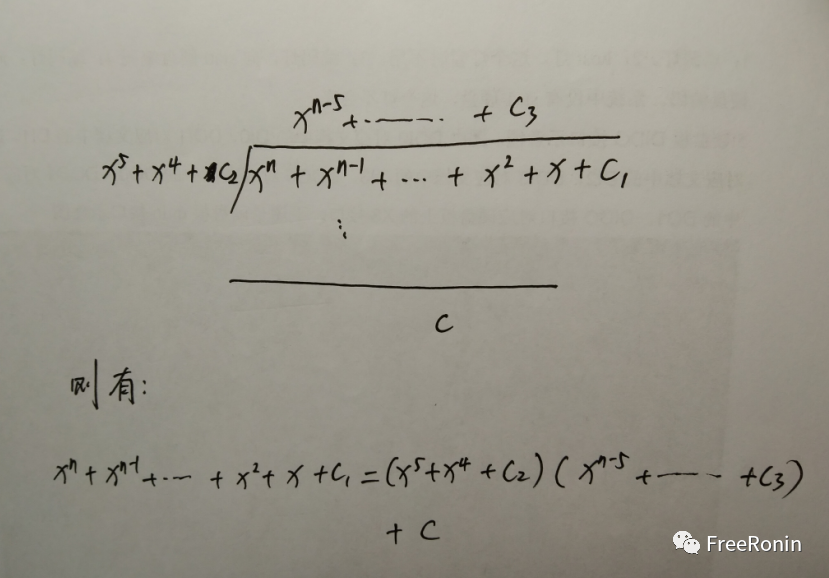 xⁿ⁻⁵ + ...... + C₃
x⁵ + x⁴ + C₂ / xⁿ + xⁿ⁻¹ + ... + x² + x + C₁
⋮
C
则有:
xⁿ + xⁿ⁻¹ + ... + x² + x + C₁ = (x⁵ + x⁴ + C₂)(xⁿ⁻⁵ + ...... + C₃)
+ C
FreeRonin